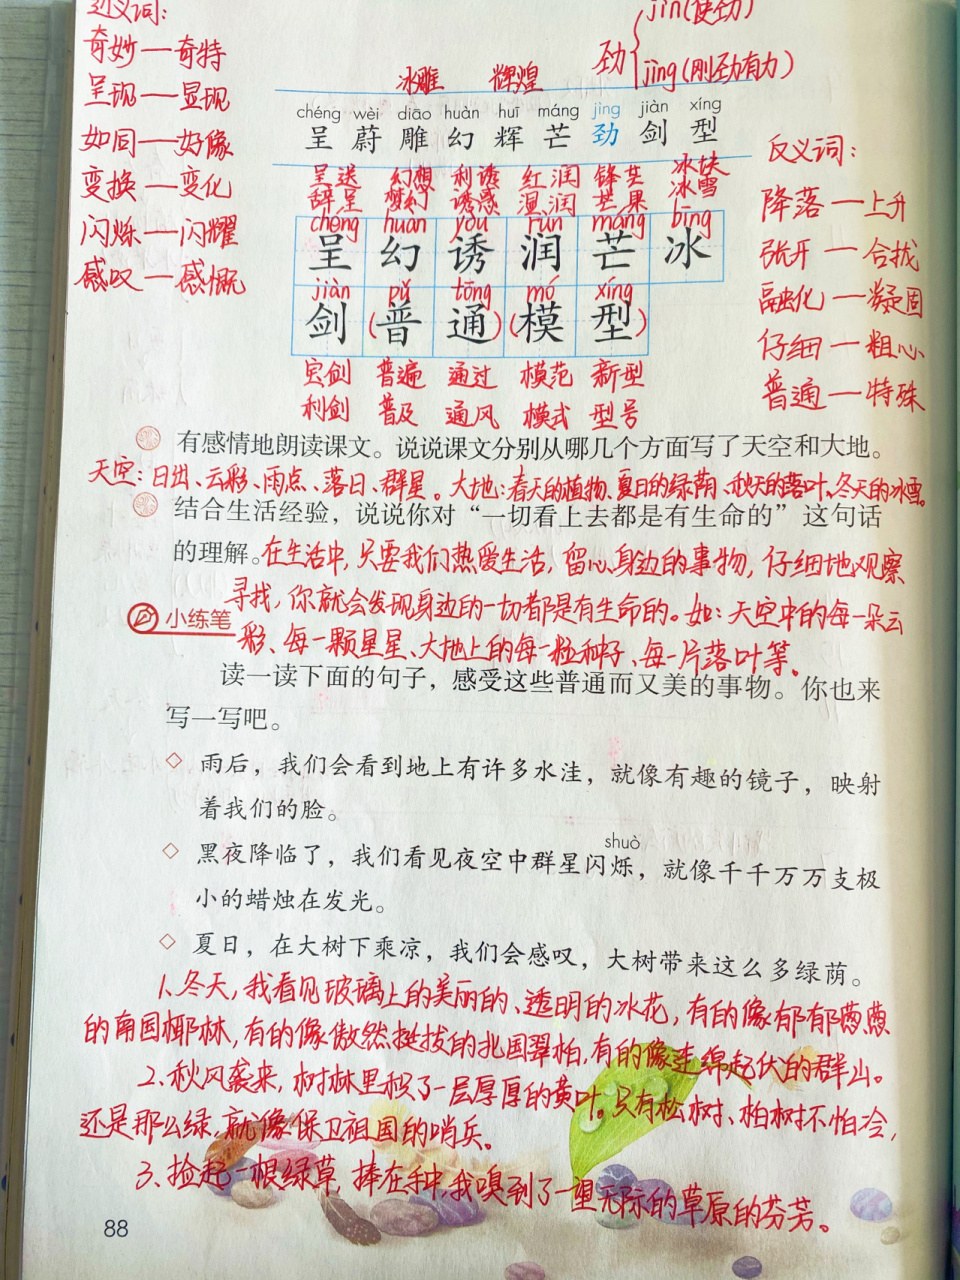 近义词:
奇妙—奇特
呈现—显现
如同—好像
变换—变化
闪烁—闪耀
感叹—感慨
劲
jìn(使劲)
jìng(刚劲有力)
冰雕 辉煌
chéng wèi diāo huàn huī máng jìng jiàn xíng
呈 蔚 雕 幻 辉 芒 劲 剑 型
呈送 幻想 利诱 红润 锋芒 冰块
辞呈 梦幻 诱惑 湿润 芒果 冰雪
chéng huàn yòu rùn máng bīng
呈 幻 诱 润 芒 冰
jiàn pǔ tōng mó xíng
剑 (普 通) (模 型)
宝剑 普遍 通过 模范 新型
利剑 普及 通风 模式 型号
反义词:
降落—上升
张开—合拢
融化—凝固
仔细—粗心
普通—特殊
有感情地朗读课文。说说课文分别从哪几个方面写了天空和大地。
天空:日出、云彩、雨点、落日、群星。大地:春天的植物、夏日的绿荫、秋天的落叶、冬天的冰雪。
结合生活经验，说说你对“一切看上去都是有生命的”这句话
的理解。在生活中,只要我们热爱生活,留心身边的事物,仔细地观察
寻找,你就会发现身边的一切都是有生命的。如:天空中的每一朵云
小练笔
彩、每一颗星星、大地上的每一粒种子、每一片落叶等。
读一读下面的句子，感受这些普通而又美的事物。你也来
写一写吧。
◇ 雨后，我们会看到地上有许多水洼，就像有趣的镜子，映射
着我们的脸。
shuò
◇ 黑夜降临了，我们看见夜空中群星闪烁，就像千千万万支极
小的蜡烛在发光。
◇ 夏日，在大树下乘凉，我们会感叹，大树带来这么多绿荫。
1、冬天,我看见玻璃上的美丽的、透明的冰花,有的像郁郁葱葱
的南国椰林,有的像傲然挺拔的北国翠柏,有的像连绵起伏的群山。
2、秋风袭来,树林里积了一层厚厚的黄叶。只有松树、柏树不怕冷,
还是那么绿,就像保卫祖国的哨兵。
3、捡起一根绿草,捧在手中,我嗅到了一望无际的草原的芬芳。
88